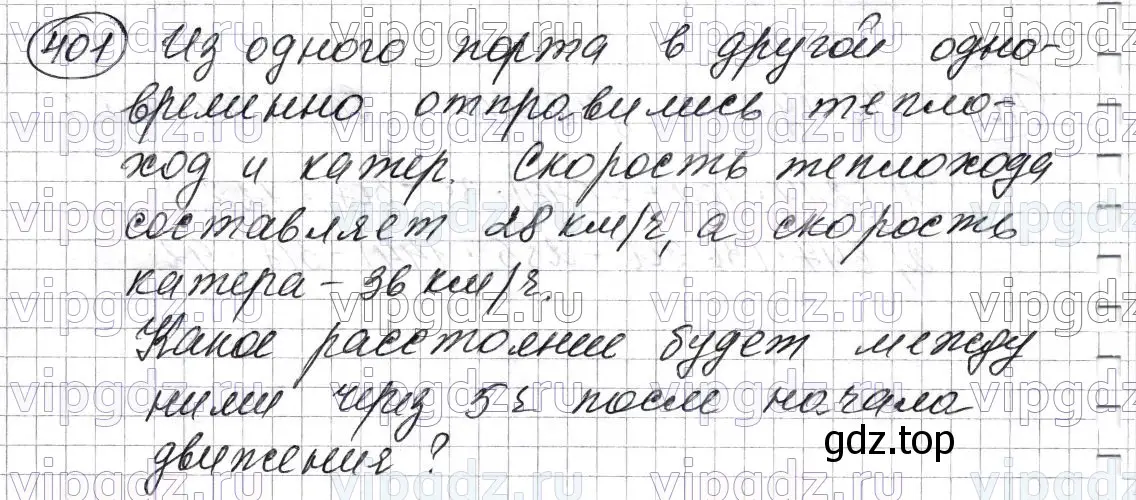 401 Из одного порта в другой одно-
временно отправились тепло-
ход и катер. Скорость теплохода
составляет 28 км/ч, а скорость
катера – 36 км/ч.
Какое расстояние будет между
ними через 5 ч после начала
движения?
gdz.top